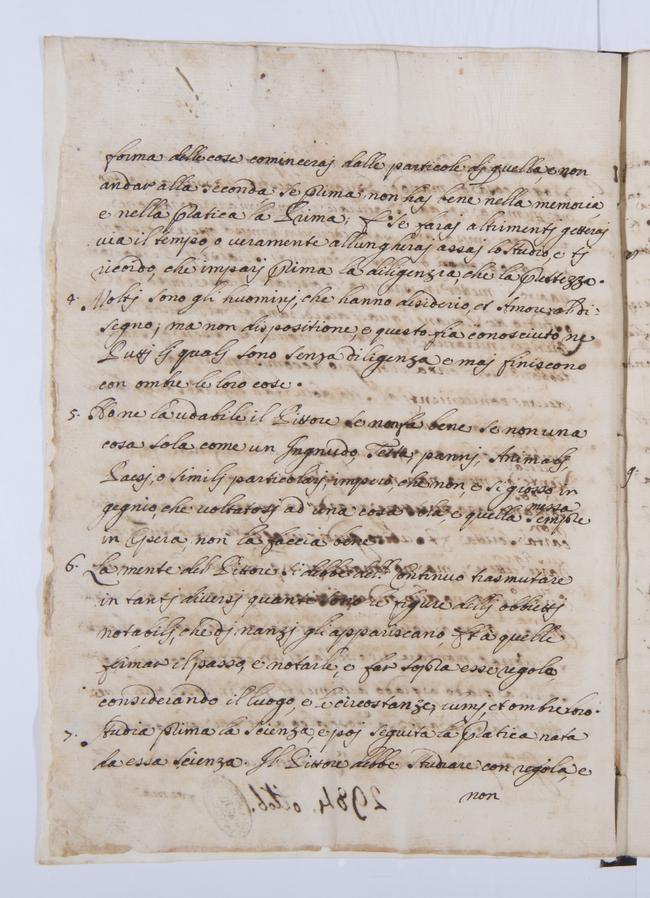 forma delle cose comincerai dalle particole di quella e non
andar alla seconda se prima non hai bene nella memoria
e nella pratica la Prima; se farai altrimenti getterai
via il tempo, o veramente allungherai assai lo studio, e ti
ricordo, che impari prima la diligenzia, che la prestezza.
4. Molti sono gli huomini, che hanno disiderio, et Amore al di-
segno; ma non dispositione, e questo fia conosciuto, ne
Putti li quali sono senza diligenza e mai finiscono
con ombre le loro cose.
5. Non e laudabile il Pittore se non fa bene se non una
cosa sola come un Ingnudo, Testa, panni, Animali,
Paesi, o simili particolari; impero, che non e si grosso in
gegnio che voltatosi ad una cosa sola, e quella sempre messa
in Opera, non la faccia bene
6. La mente del Pittore si debbe del Continuo trasmutare
in tanti diversi quante sono le figure delli obbietti
notabili, che dinanzi gli appariscano, et a quelle
fermar il passo, e notarle, e far sopra esse regola
considerando il luogo, e le circostanze, lumi et ombre loro.
7. Studia prima la Scienza, e poi seguita la pratica nata
da essa scienza. Il Pittore debbe studiare con regola, e
non
2984